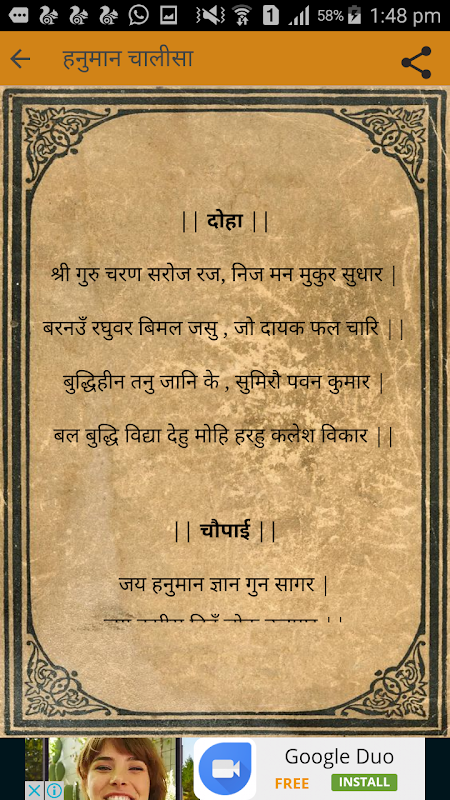 58% 1:48 pm
हनुमान चालीसा
|| दोहा ||
श्री गुरु चरण सरोज रज, निज मन मुकुर सुधार |
बरनउँ रघुवर बिमल जसु , जो दायक फल चारि ||
बुद्धिहीन तनु जानि के , सुमिरौ पवन कुमार |
बल बुद्धि विद्या देहु मोहि हरहु कलेश विकार ||
|| चौपाई ||
जय हनुमान ज्ञान गुन सागर |
Google Duo
FREE INSTALL